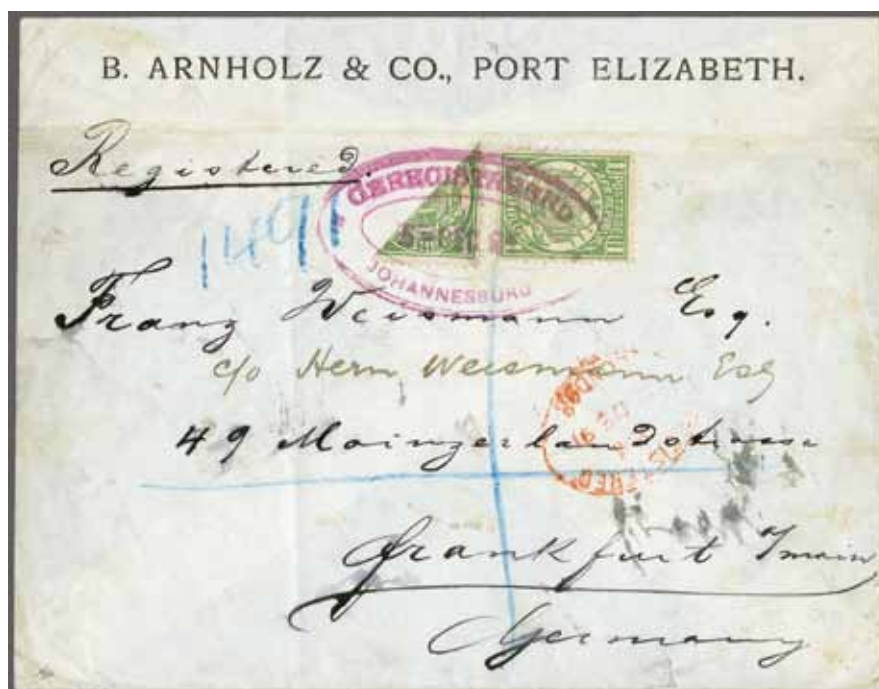 B. ARNHOLZ & CO., PORT ELIZABETH.
Registered.
GEREGISTREERD
1491
JOHANNESBURG
Franz Weismann Esq.
c/o Herrn Weismann Esq
49 Mainzerlandstrasse
Frankfurt a/main
Germany